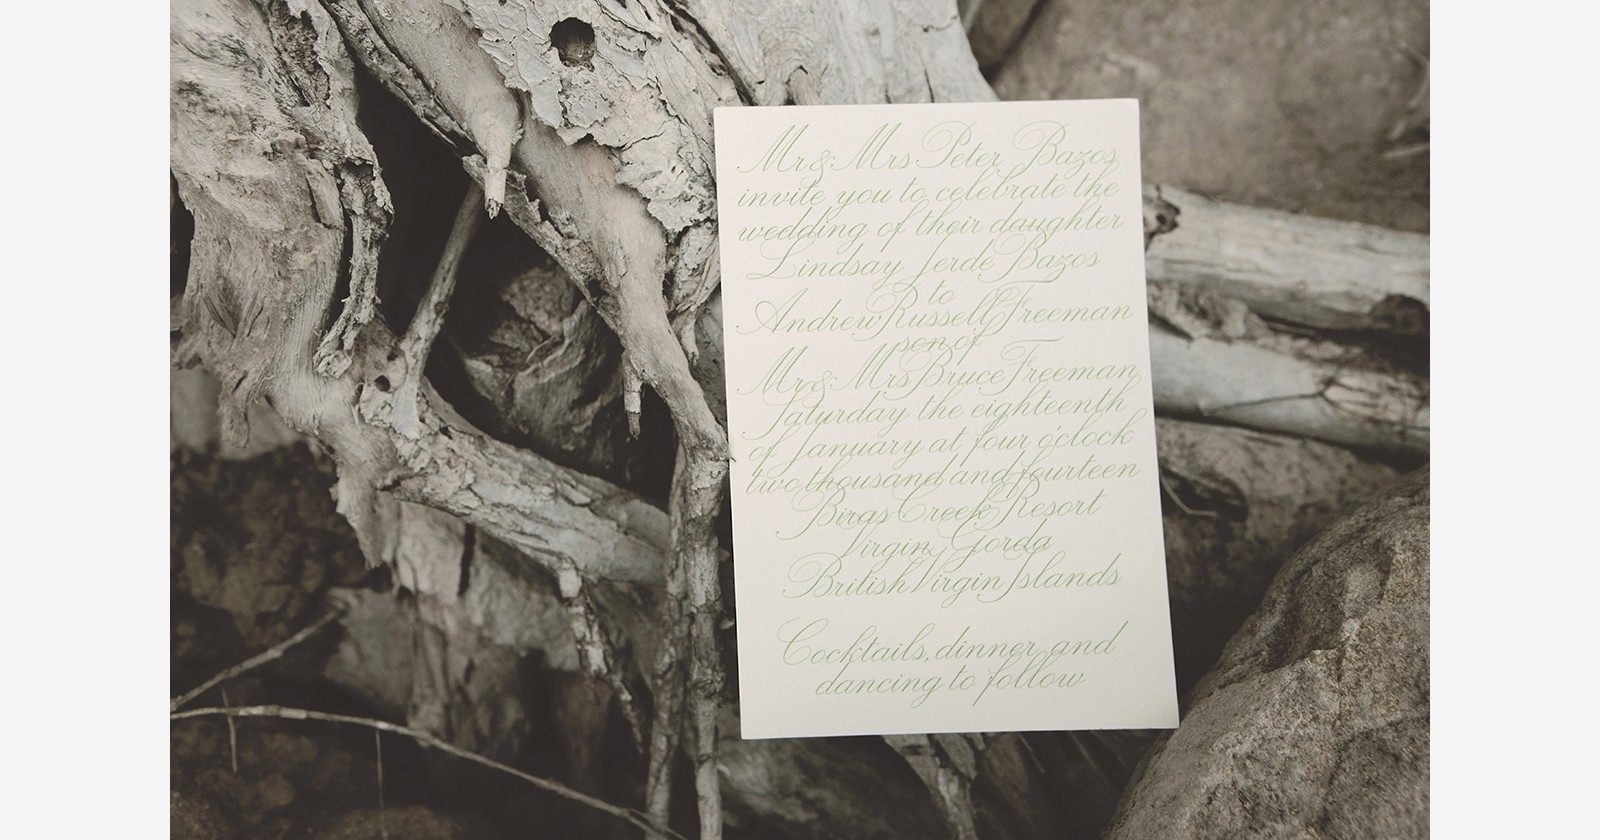 Mr & Mrs Peter Bazos
invite you to celebrate the
wedding of their daughter
Lindsay Jerde Bazos
to
Andrew Russell Freeman
son of
Mr & Mrs Bruce Freeman
Saturday the eighteenth
of January at four o'clock
two thousand and fourteen
Biras Creek Resort
Virgin Gorda
British Virgin Islands
Cocktails, dinner and
dancing to follow